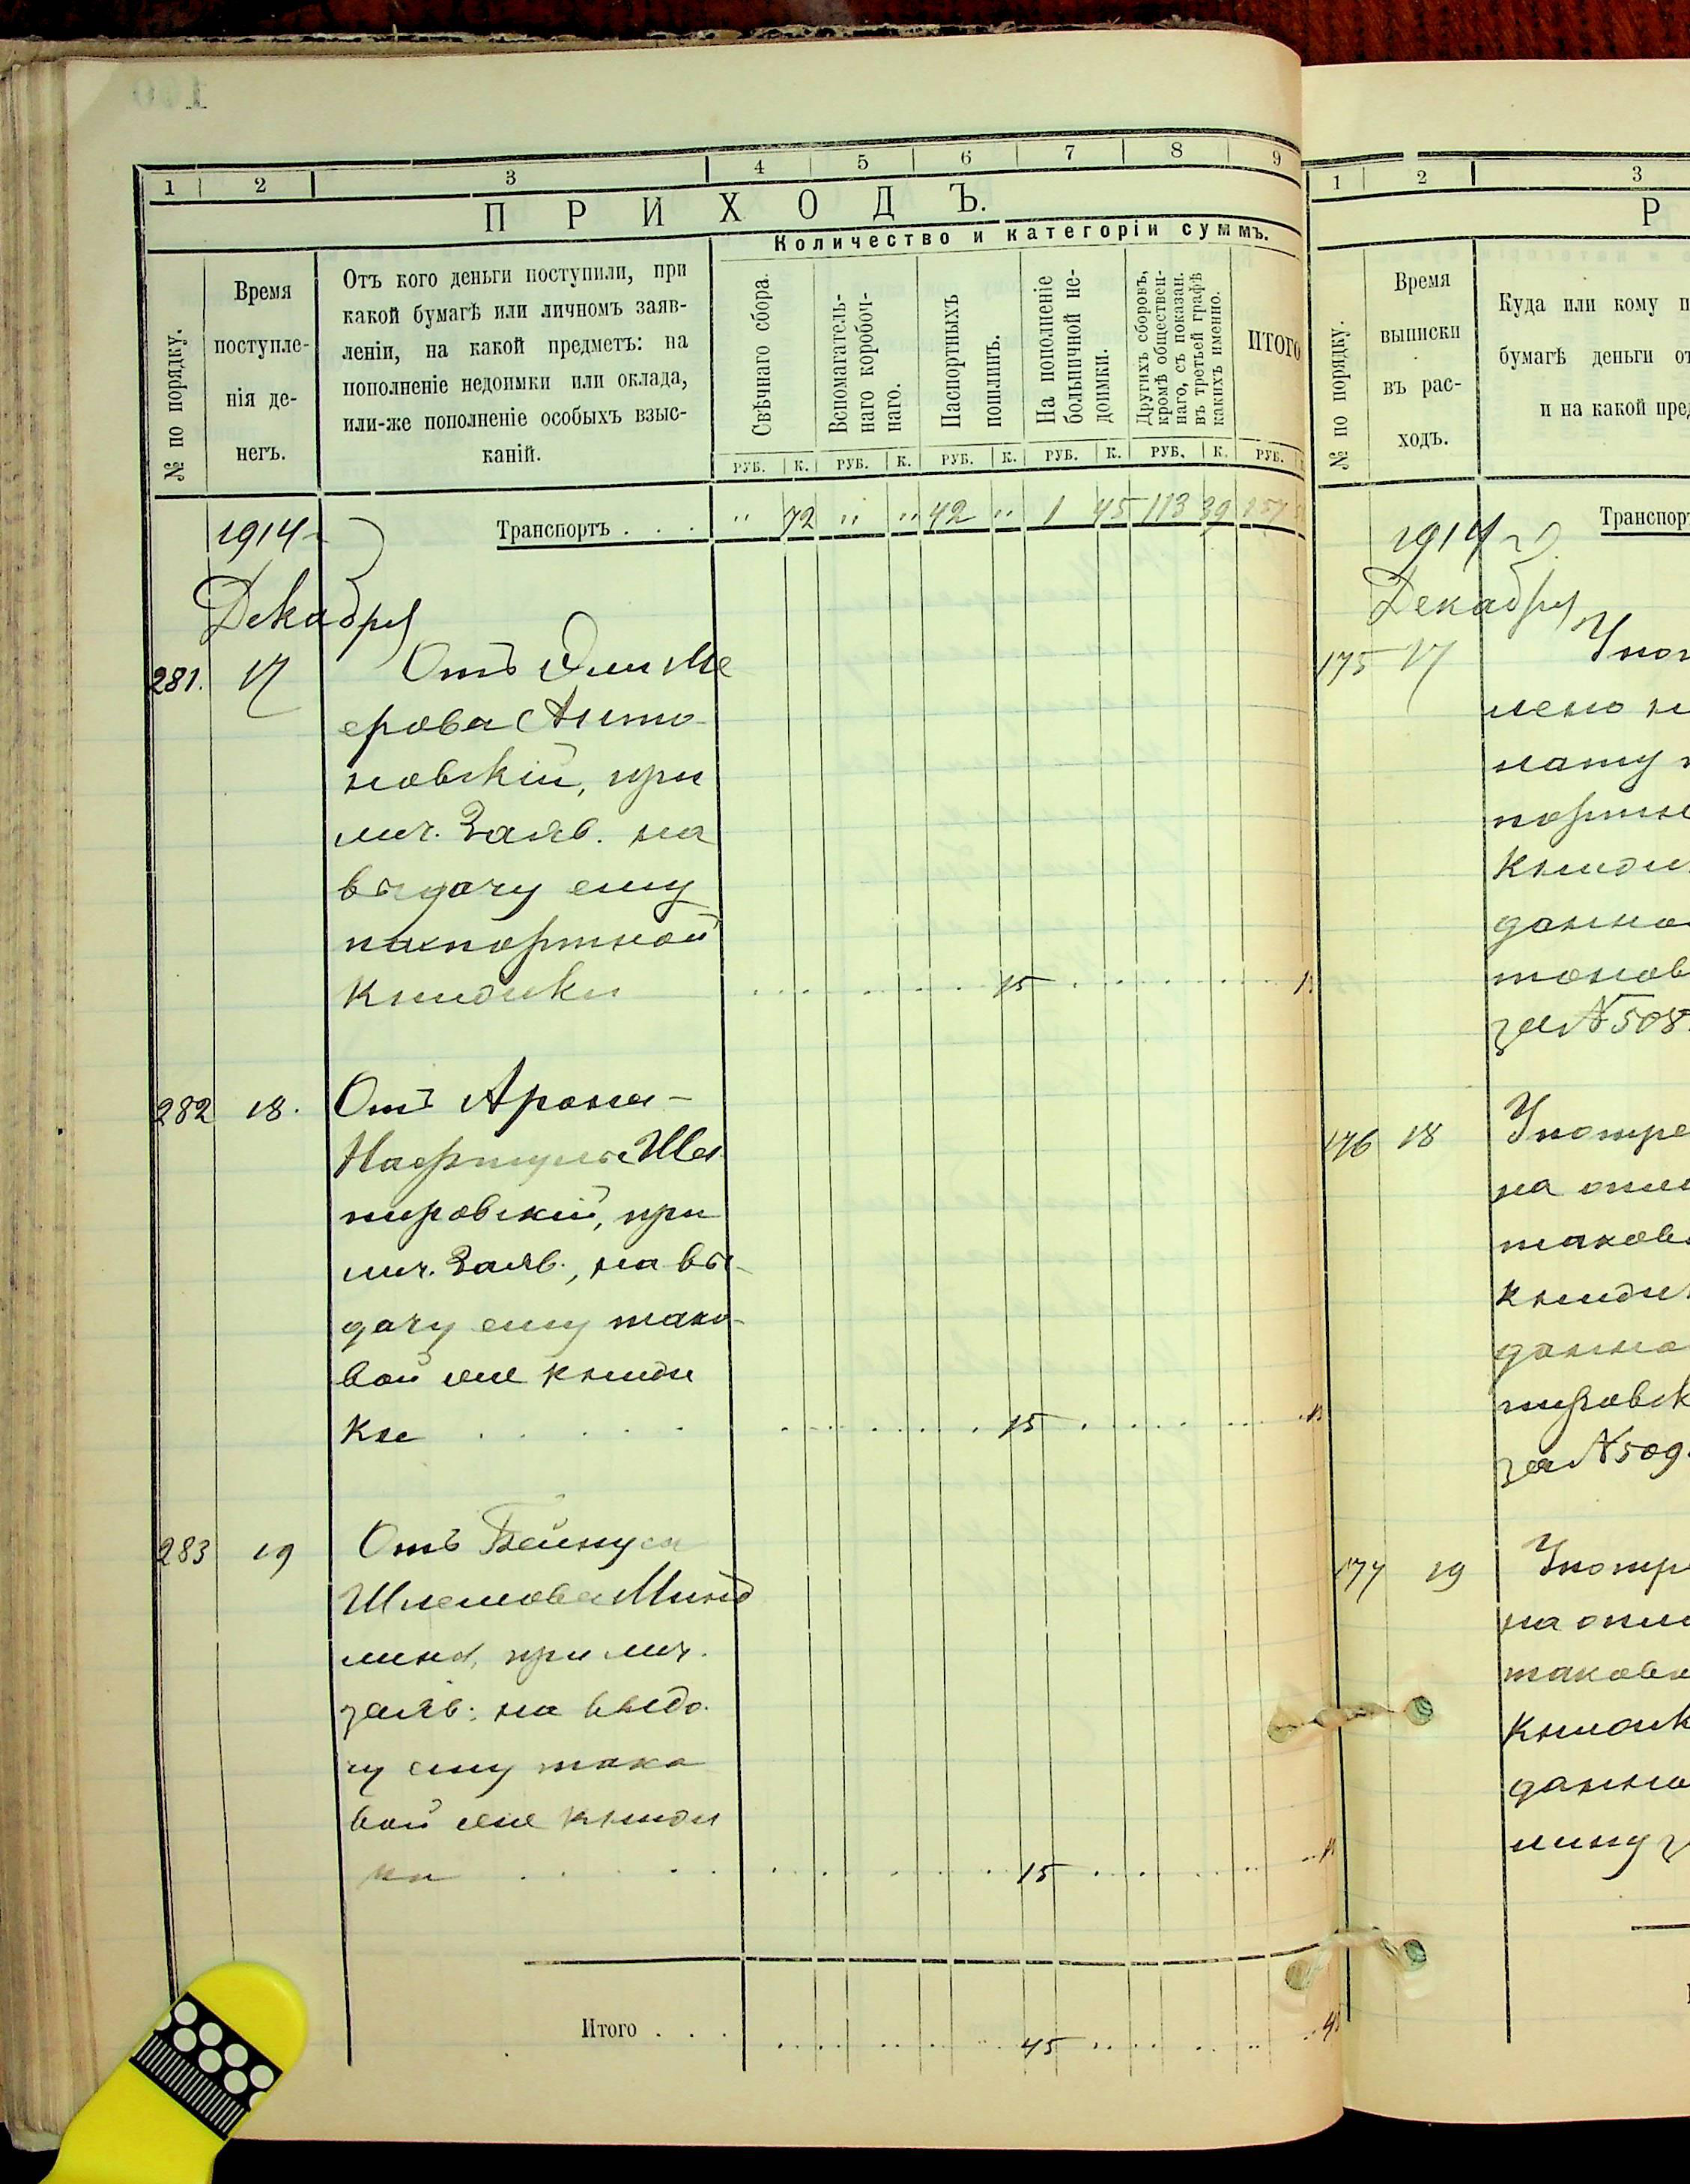 1 2 3 4 5 6 7 8 9
ПРИХОДЪ.
Количество и категоріи суммъ.
№ по порядку.
Время
поступле-
нія де-
негъ.
Отъ кого деньги поступили, при
какой бумагѣ или личномъ заяв-
леніи, на какой предметъ: на
пополненіе недоимки или оклада,
или-же пополненіе особыхъ взыс-
каній.
Свѣчнаго сбора.
Вспомагатель-
наго коробоч-
наго.
Паспортныхъ
пошлинъ.
На пополненіе
больничной не-
доимки.
Другихъ сборовъ,
кромѣ обществен-
наго, съ показан.
въ третьей графѣ
какихъ именно.
ИТОГО
РУБ. К. РУБ. К. РУБ. К. РУБ. К. РУБ. К. РУБ.
1914 Транспортъ . . . " 72 " " 42 " 1 45 113 39 157
Декабря
281. 17 Отъ Эли Ме
ерова Анто
новскій, при
лич. Заяв. на
выдачу ему
паспортной
книжки 15
282 18. Отъ Арона-
Нафтула Ша
пировскій, при
лич. Заяв., на вы-
дачу ему тако-
вой же книж
ки 15
283 19 Отъ Бейнуса
Шлемова Минд
лина, при лич.
заяв. на выда
чу ему тако
вой же книж
ки 15
Итого . . . 45
1 2 3
Р
№ по порядку.
Время
выписки
въ рас-
ходъ.
Куда или кому п
бумагѣ деньги от
и на какой пред
1914 г. Транспорт
Декабря
175 17 Упот
лено н
лату п
портн
книжк
данно
тонов
за № 508.
176 18 Употре
на опл
таков
книжк
данно
пировск
за № 509.
177 19 Употр
на опл
таков
книжк
данно
лину з